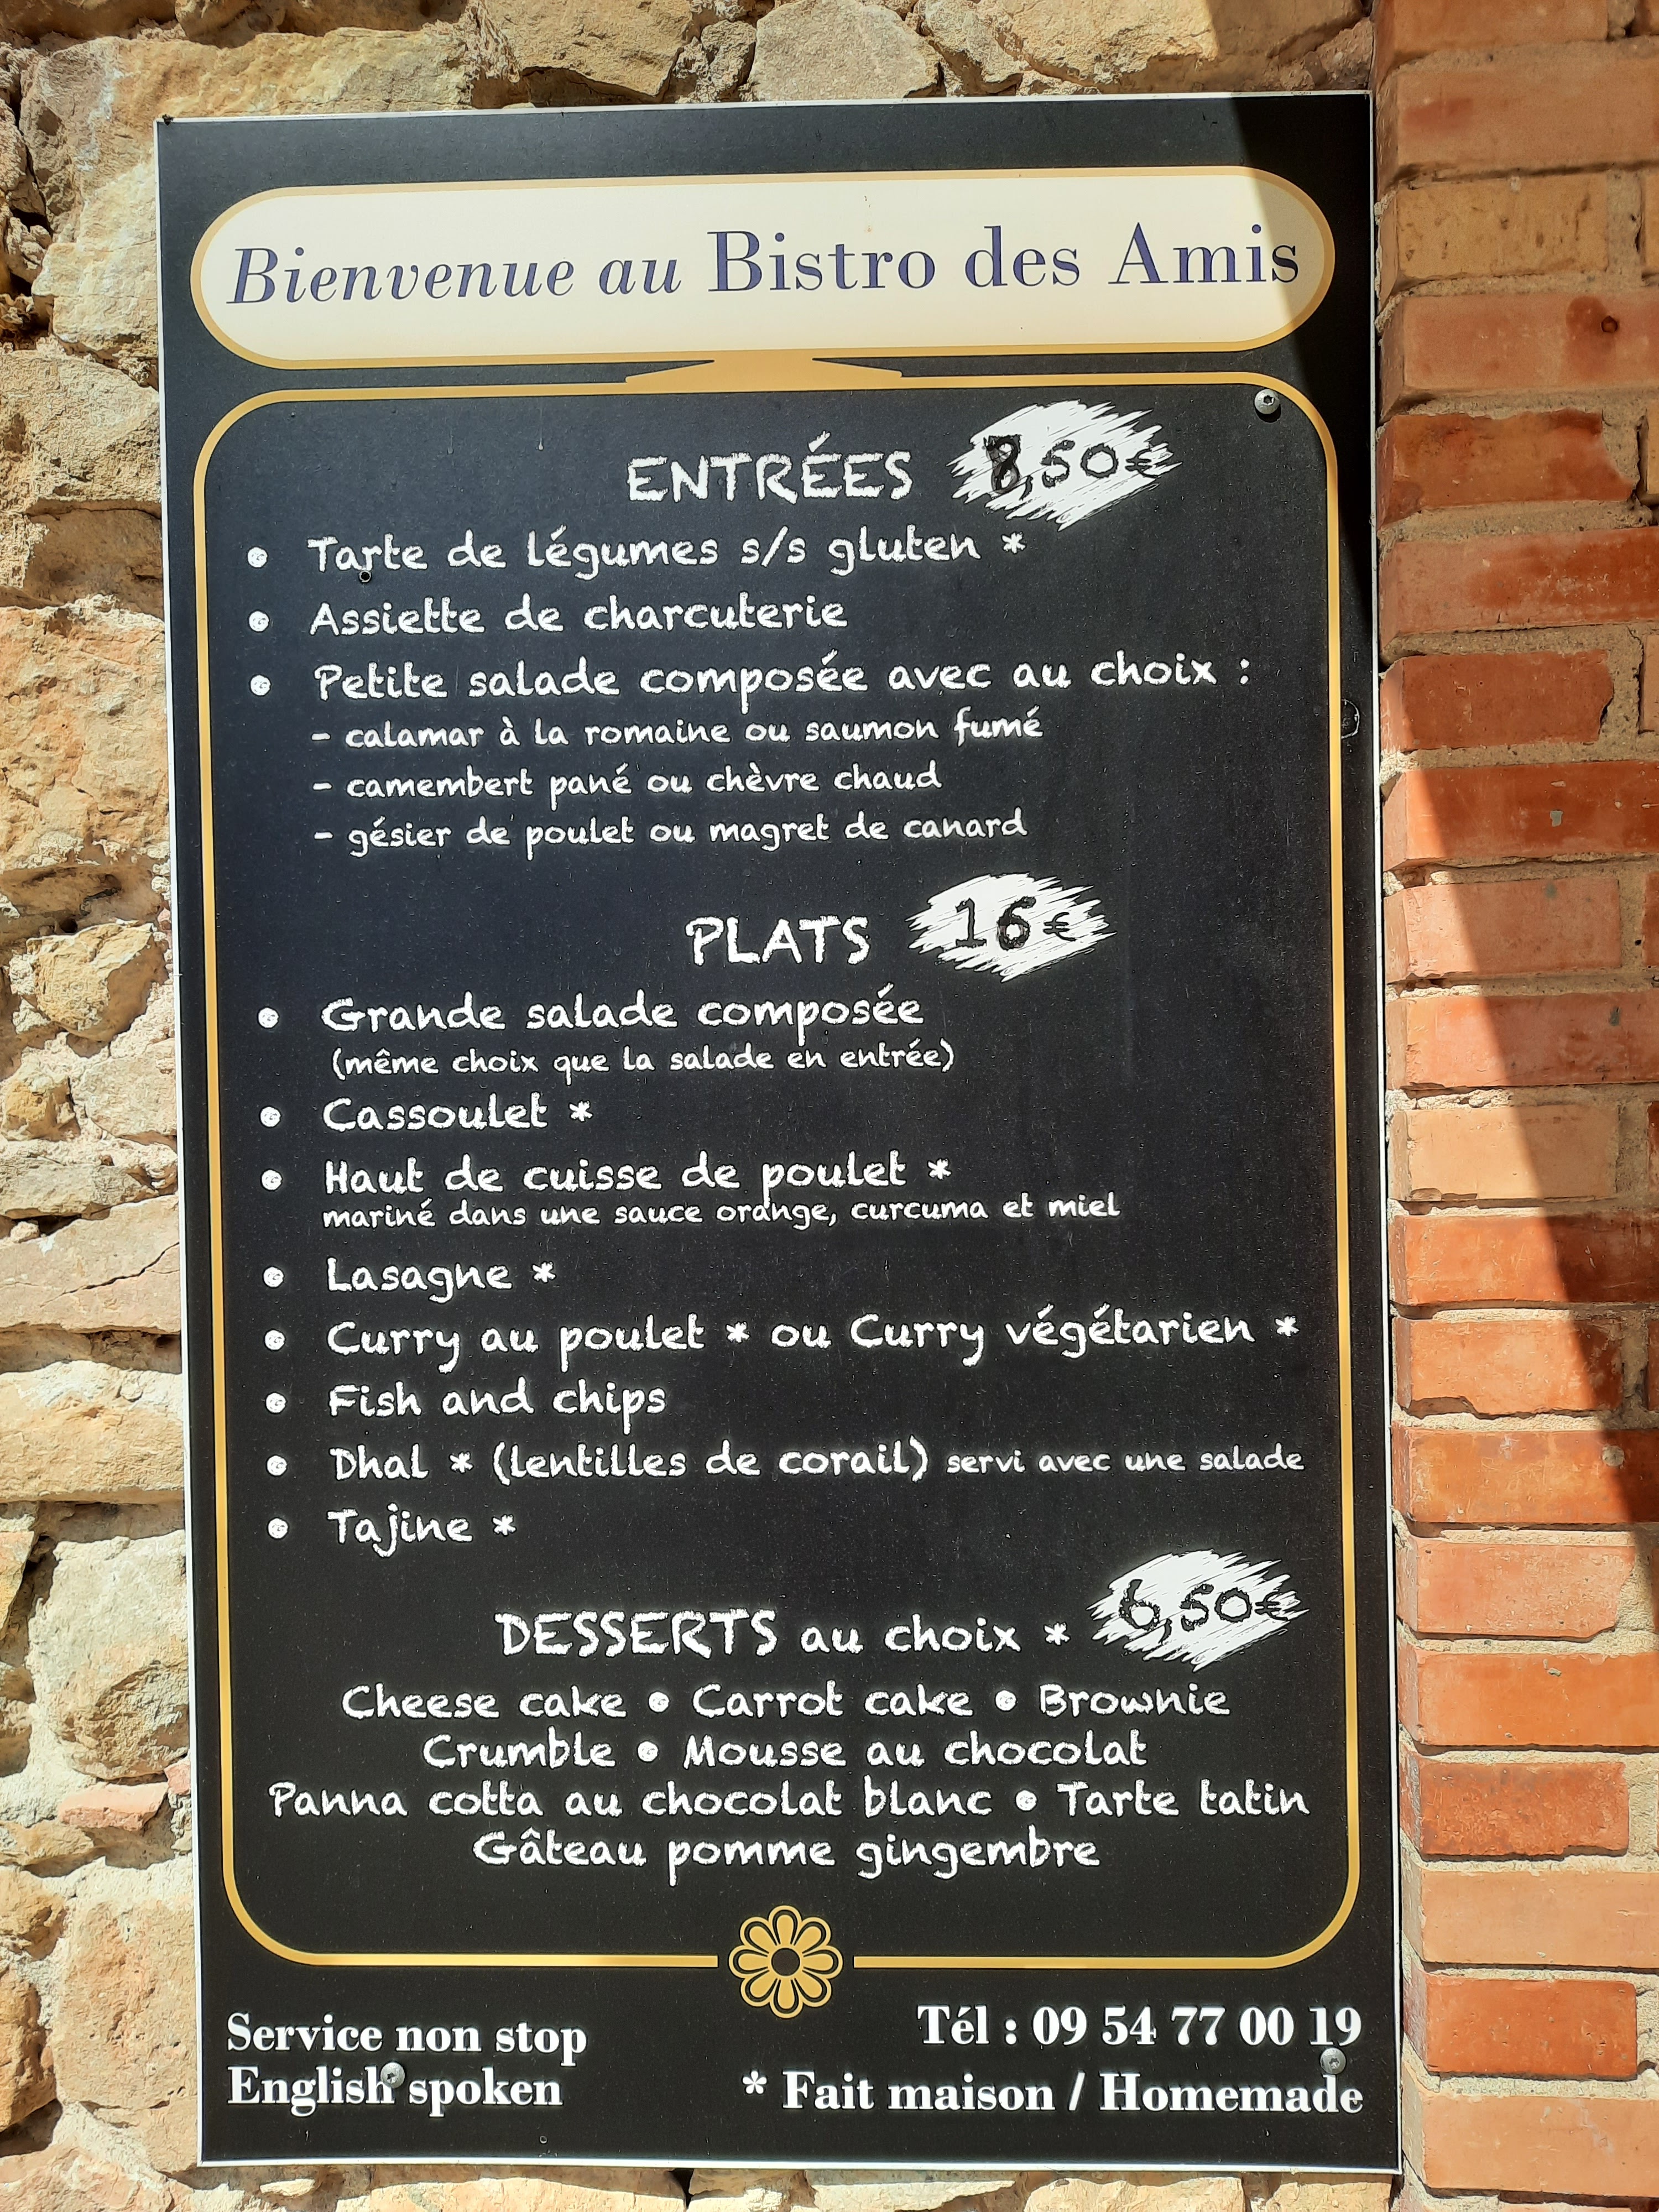 Bienvenue au Bistro des Amis
ENTRÉES 8,50€
• Tarte de légumes s/s gluten *
• Assiette de charcuterie
• Petite salade composée avec au choix :
- calamar à la romaine ou saumon fumé
- camembert pané ou chèvre chaud
- gésier de poulet ou magret de canard
PLATS 16€
• Grande salade composée
(même choix que la salade en entrée)
• Cassoulet *
• Haut de cuisse de poulet *
mariné dans une sauce orange, curcuma et miel
• Lasagne *
• Curry au poulet * ou Curry végétarien *
• Fish and chips
• Dhal * (lentilles de corail) servi avec une salade
• Tajine *
DESSERTS au choix * 6,50€
Cheese cake • Carrot cake • Brownie
Crumble • Mousse au chocolat
Panna cotta au chocolat blanc • Tarte tatin
Gâteau pomme gingembre
Service non stop
English spoken
Tél : 09 54 77 00 19
* Fait maison / Homemade